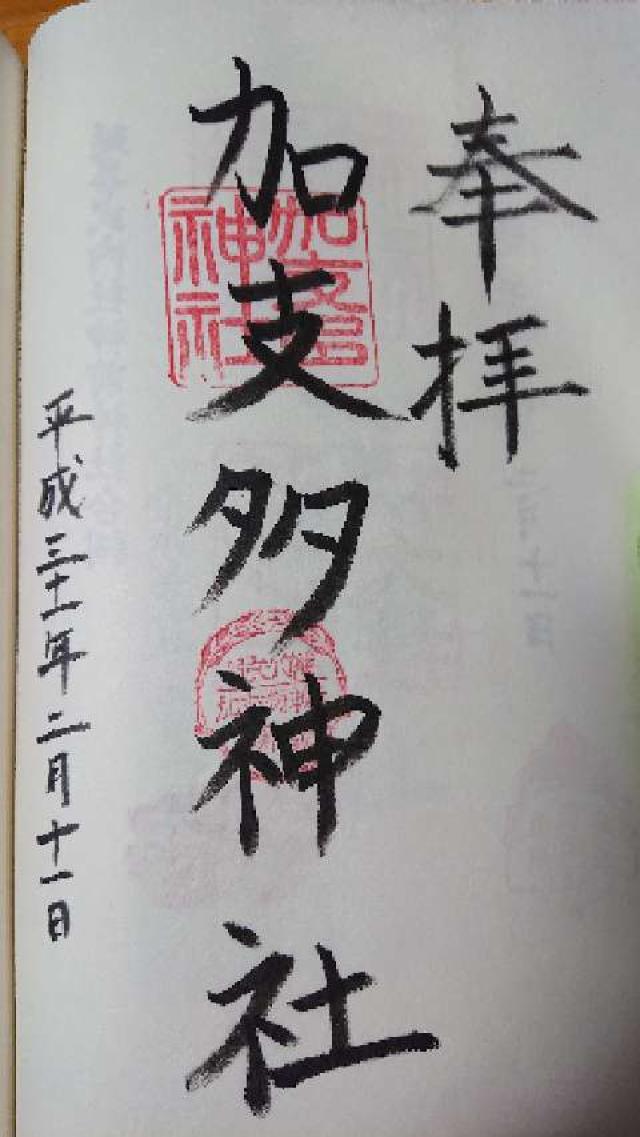 奉拝
加支多神社
加支多神社
平成三十一年二月十一日